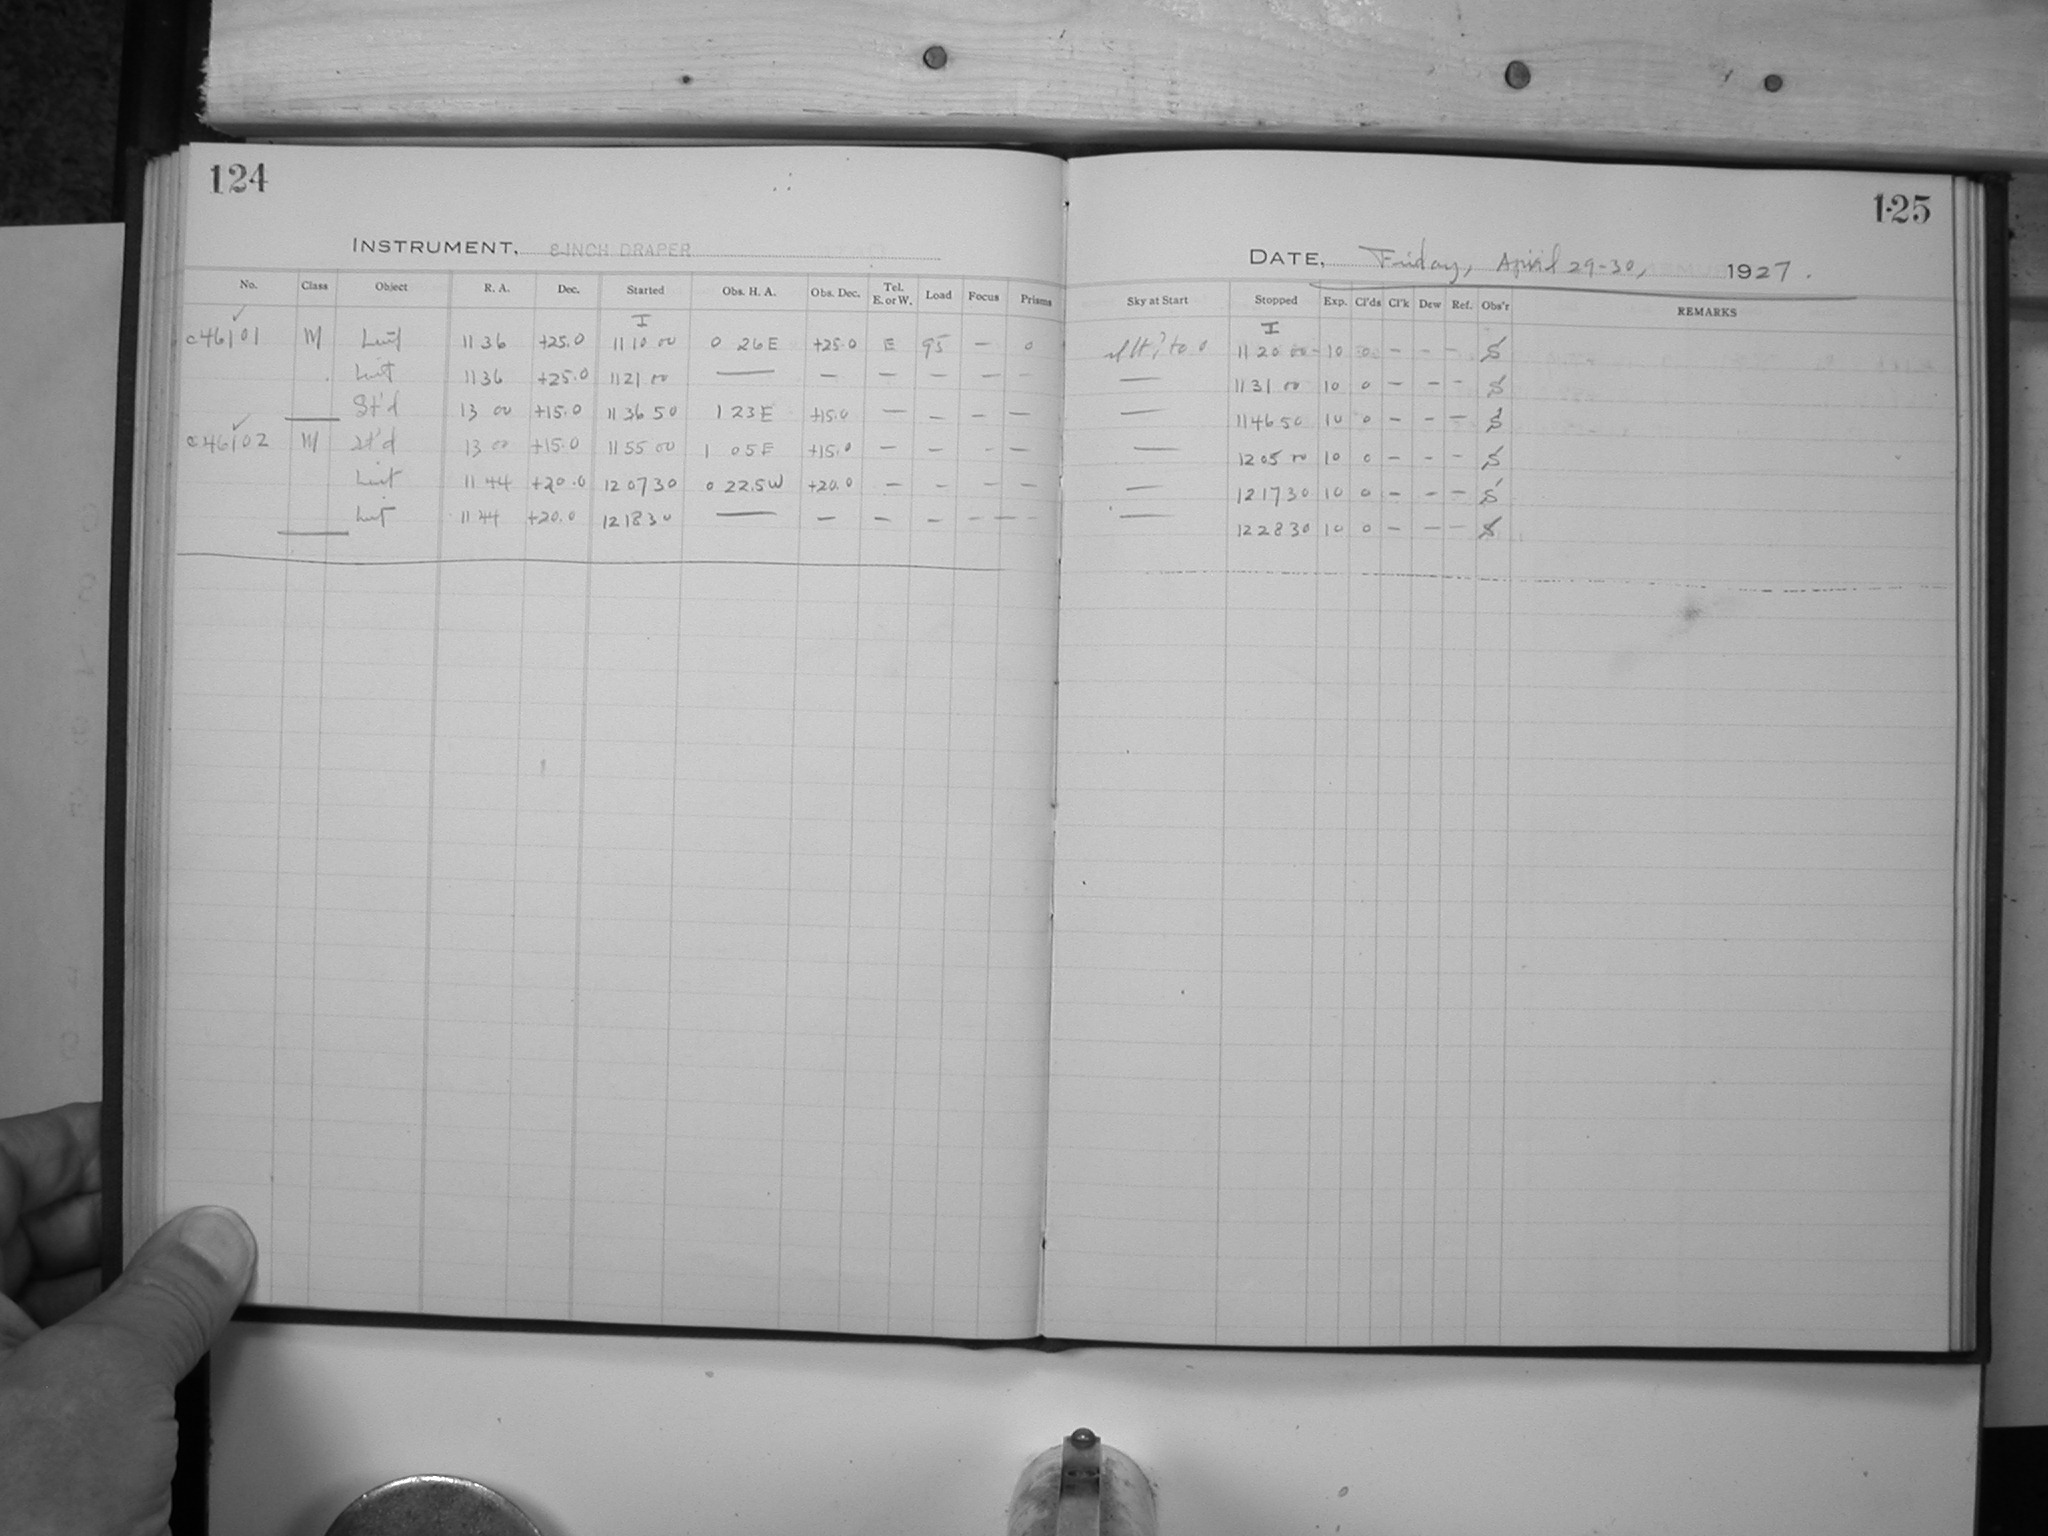 124
INSTRUMENT, 8-INCH DRAPER
No. Class Object R. A. Dec. Started Obs. H. A. Obs. Dec. Tel. E. or W. Load Focus Prisms
I
c46101 M 11 36 +25.0 11 10 00 0 26 E +25.0 E 95 — 0
11 36 +25.0 11 21 00 — — — — — —
St'd 13 00 +15.0 11 36 50 1 23 E +15.0 — — — —
c46102 M St'd 13 00 +15.0 11 55 00 1 05 E +15.0 — — — —
11 44 +20.0 12 07 30 0 22.5 W +20.0 — — — —
11 44 +20.0 12 18 30 — — — — — —
125
DATE, Friday, April 29-30, 1927.
Sky at Start Stopped Exp. Cl'ds Cl'k Dew Ref. Obs'r REMARKS
I
to 0 11 20 00 10 0 — — — S
— 11 31 00 10 0 — — — S
— 11 46 50 10 0 — — — S
— 12 05 00 10 0 — — — S
— 12 17 30 10 0 — — — S
— 12 28 30 10 0 — — — S